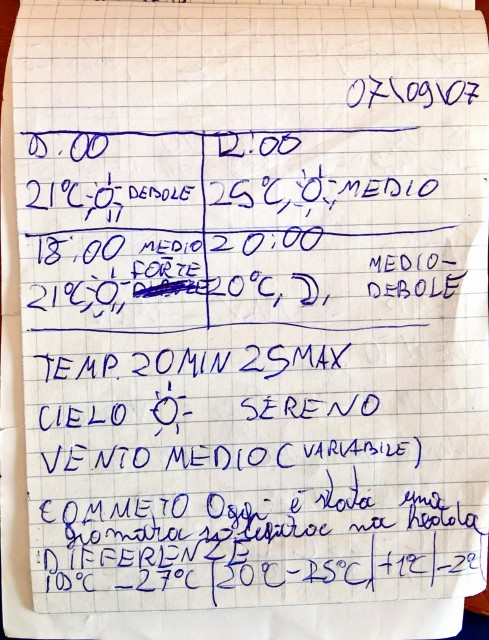 07\09\07
9:00 12:00
21°C, DEBOLE 25°C, MEDIO
18:00 MEDIO FORTE 20:00
21°C, 20°C, MEDIO-DEBOLE
TEMP. 20 MIN 25 MAX
CIELO SERENO
VENTO MEDIO (VARIABILE)
COMMETO Oggi è stata una
DIFFERENZE
19°C - 27°C | 20°C - 25°C | +1°C | -2°C